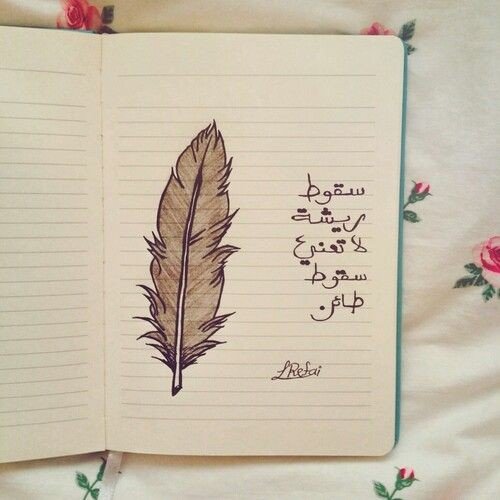 سقوط
ريشة
لا تعني
سقوط
طائر
LRefai